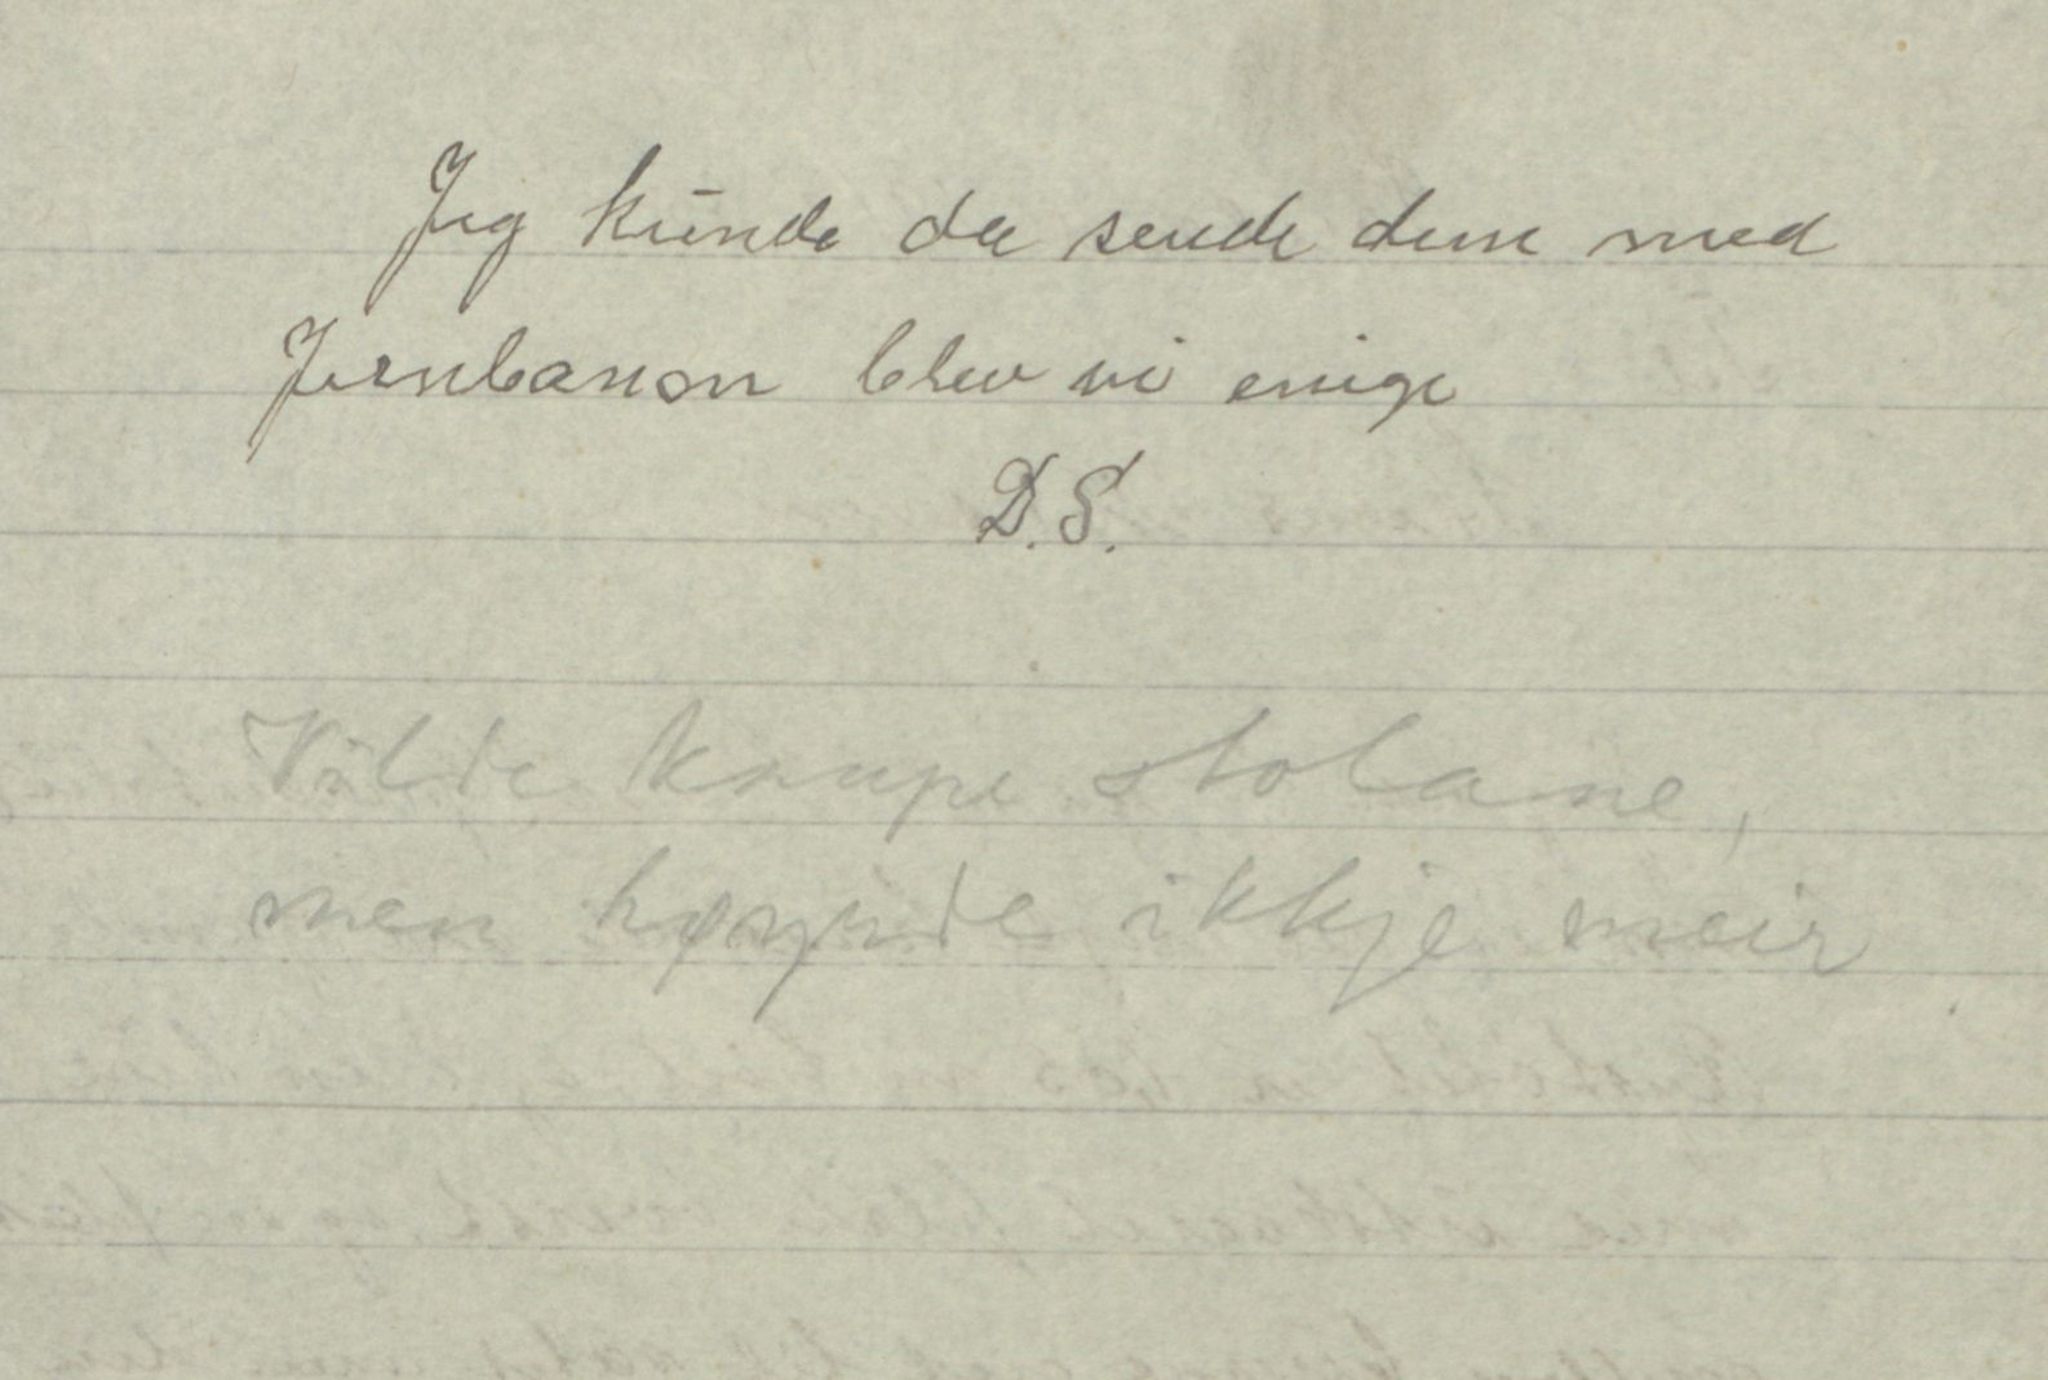 Jeg kunde da sende dem med
Jernbanen blev vi enige
D.S.
Vilde kaupe stolane,
men høyrde ikkje meir